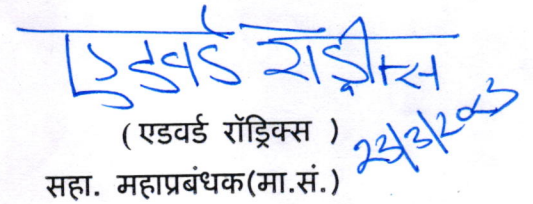 एडवर्ड रॉड्रीक्स
( एडवर्ड रॉड्रिक्स )
23/3/2023
सहा. महाप्रबंधक(मा.सं.)